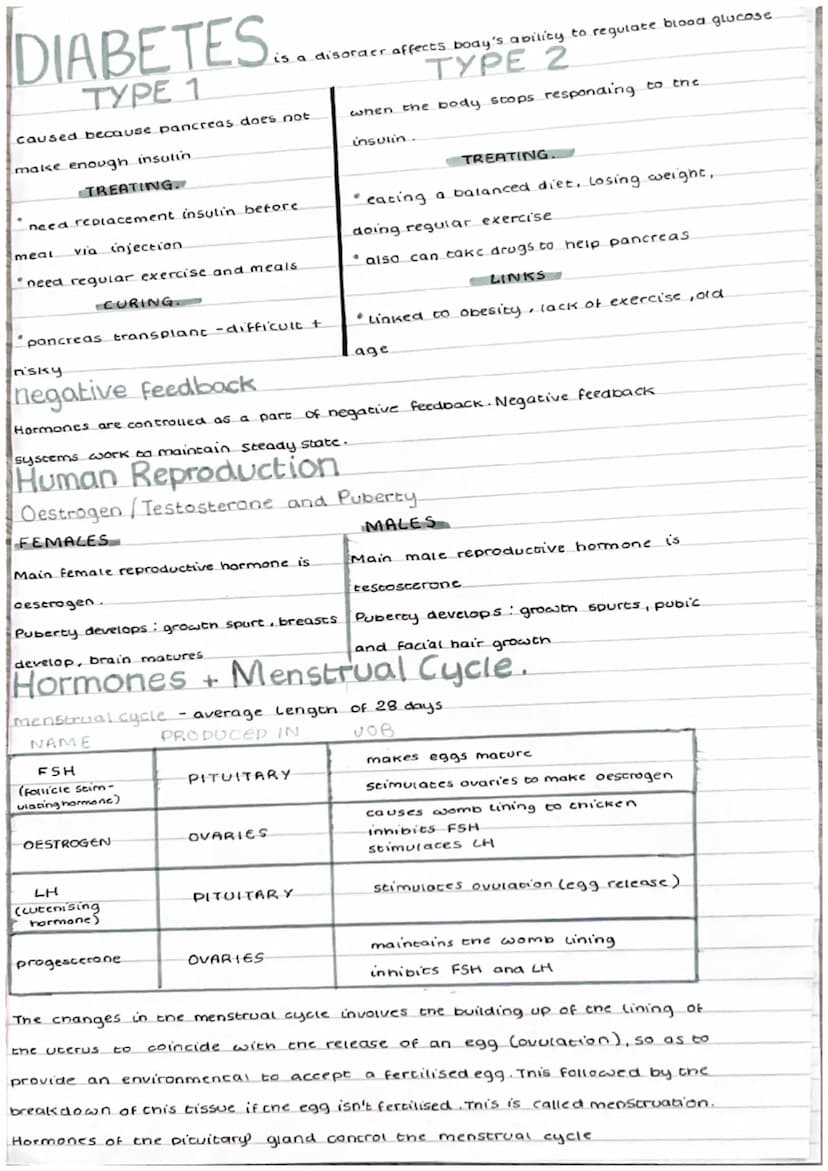 DIABETES is a disorder affects body's ability to regulate blood glucose
TYPE 1
caused because pancreas does not
make enough insulin
TREATING.
• need replacement insulin before
meal via injection
• need regular exercise and meals
CURING.
• pancreas transplant - difficult +
risky
TYPE 2
when the body stops responding to the
insulin.
TREATING.
• eating a balanced diet, losing weight,
doing regular exercise
• also can take drugs to help pancreas
LINKS
• Linked to obesity, lack of exercise, old
age
negative feedback
Hormones are controlled as a part of negative feedback. Negative feedback
systems work to maintain steady state.
Human Reproduction
Oestrogen / Testosterone and Puberty
FEMALES
Main female reproductive hormone is
oestrogen.
Puberty develops : growth spurt, breasts
develop, brain matures
MALES
Main male reproductive hormone is
testosterone
Puberty develops : growth spurts, pubic
and facial hair growth
Hormones + Menstrual Cycle.
menstrual cycle - average length of 28 days
NAME PRODUCED IN JOB
FSH
(follicle stim-
ulating hormone)
PITUITARY
makes eggs mature
stimulates ovaries to make oestrogen
OESTROGEN
OVARIES
causes womb lining to thicken
inhibits FSH
stimulates LH
LH
(lutenising
hormone)
PITUITARY
stimulates ovulation (egg release)
progesterone
OVARIES
maintains the womb lining
inhibits FSH and LH
The changes in the menstrual cycle involves the building up of the lining of
the uterus to coincide with the release of an egg (ovulation), so as to
provide an environmental to accept a fertilised egg. This followed by the
breakdown of this tissue if the egg isn't fertilised. This is called menstruation.
Hormones of the pituitary gland control the menstrual cycle